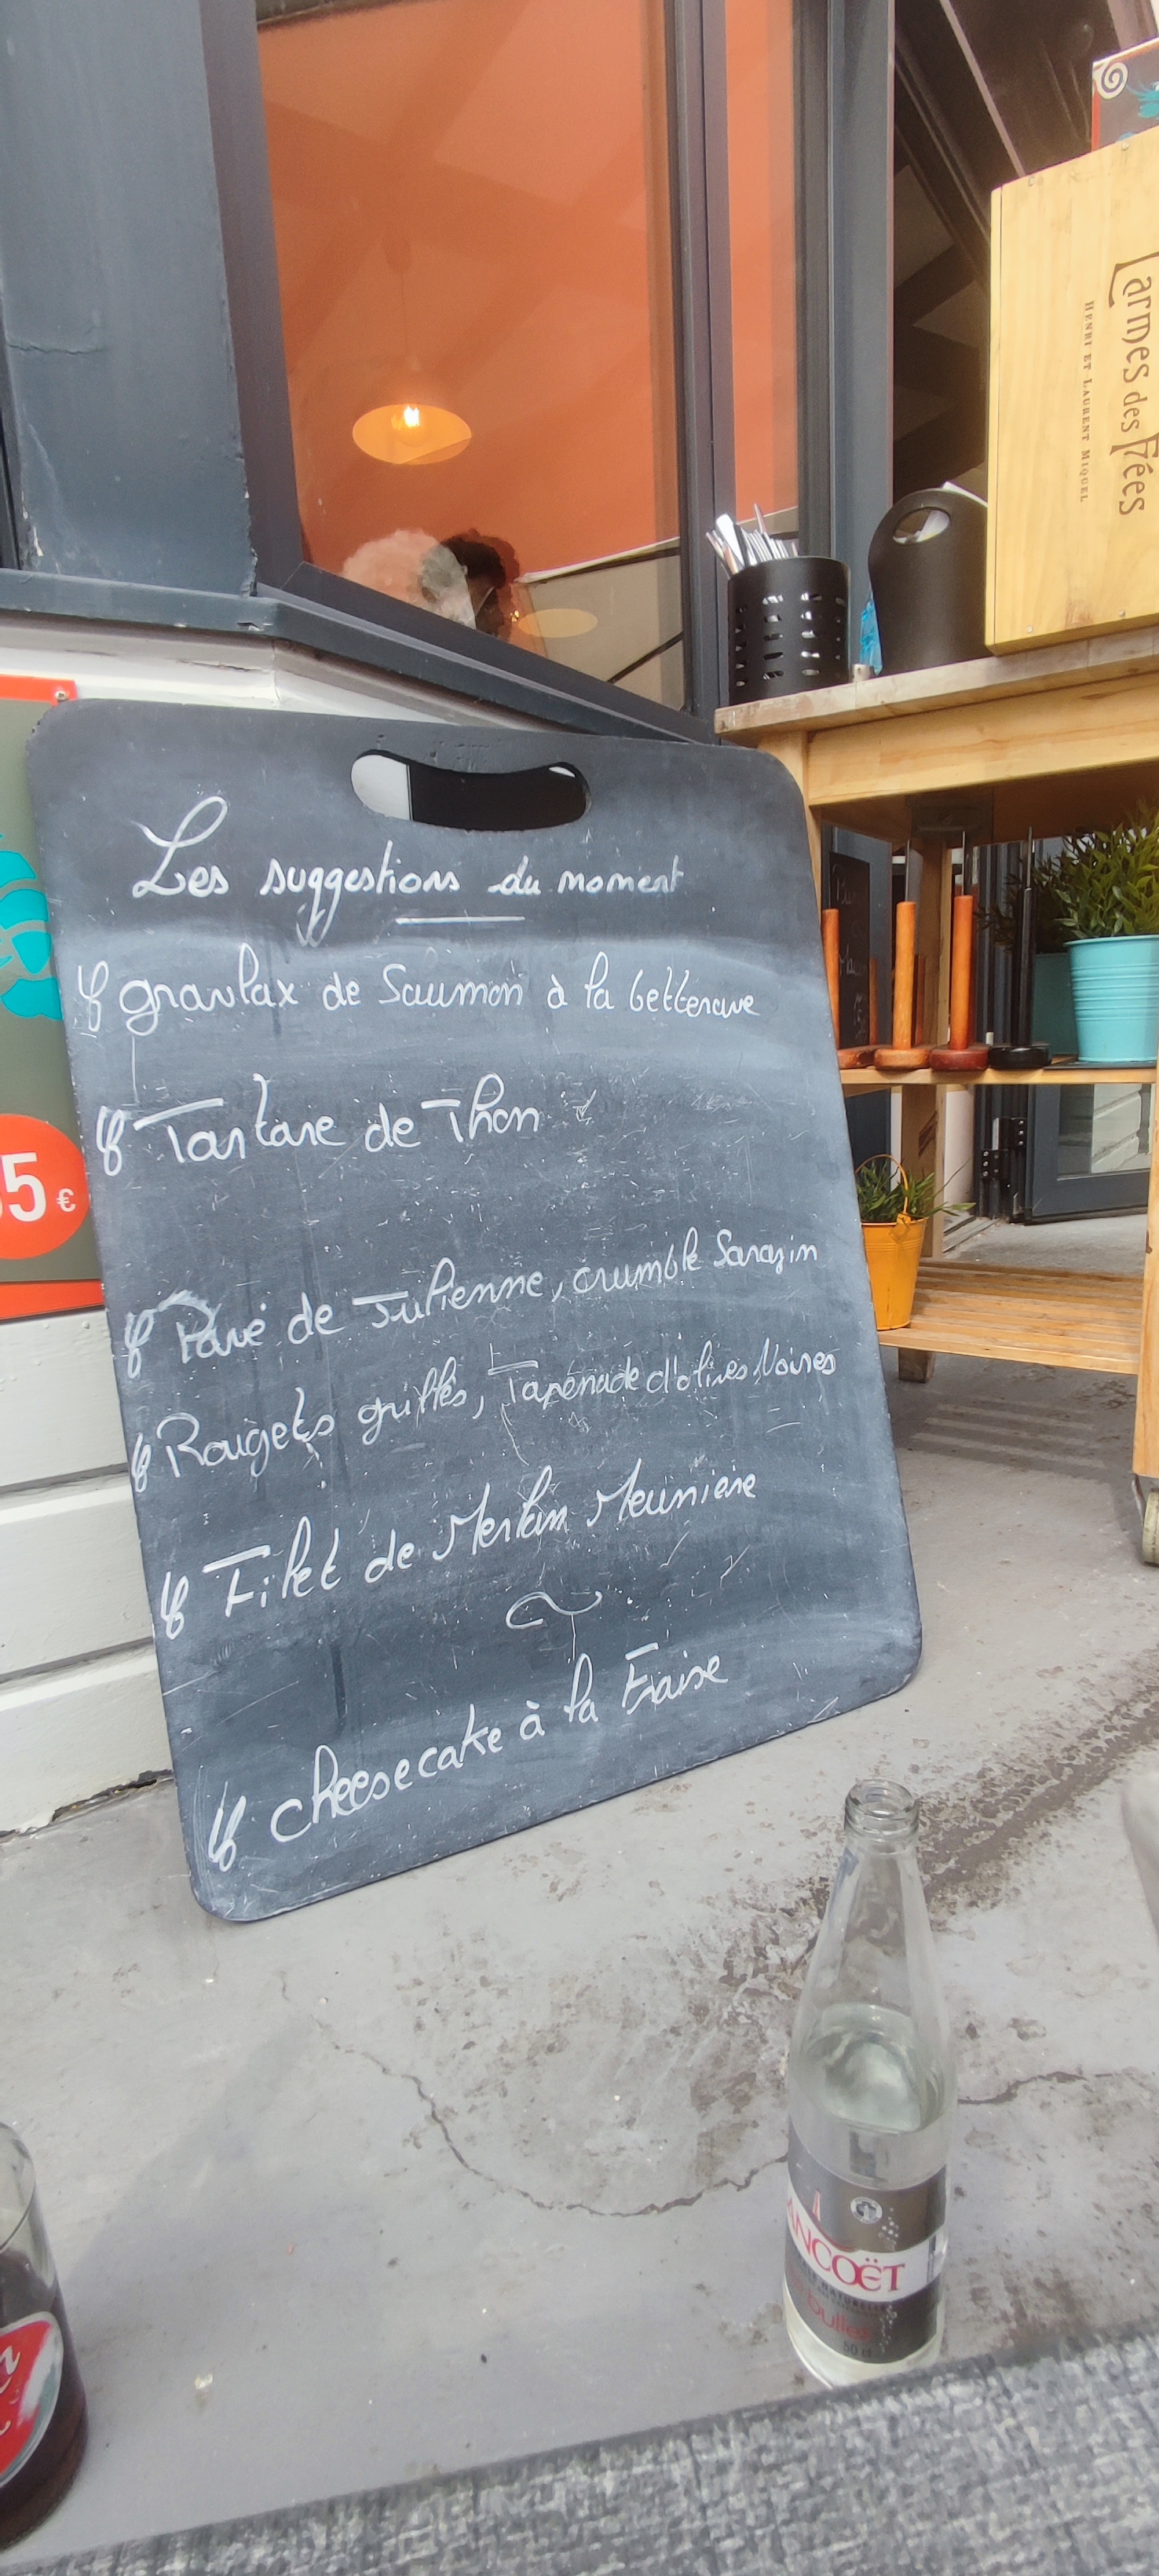 Larmes des Fées
HENRI ET LAURENT MIQUEL
Les suggestions du moment
gravlax de Saumon à la betterave
Tartare de Thon
5 €
Pavé de Julienne, crumble Sarazin
Rougets grillés, Tapenade d'olives Noires
Filet de Merlan Meuniere
cheesecake à la Fraise
ANCOËT
bulles
50 cl